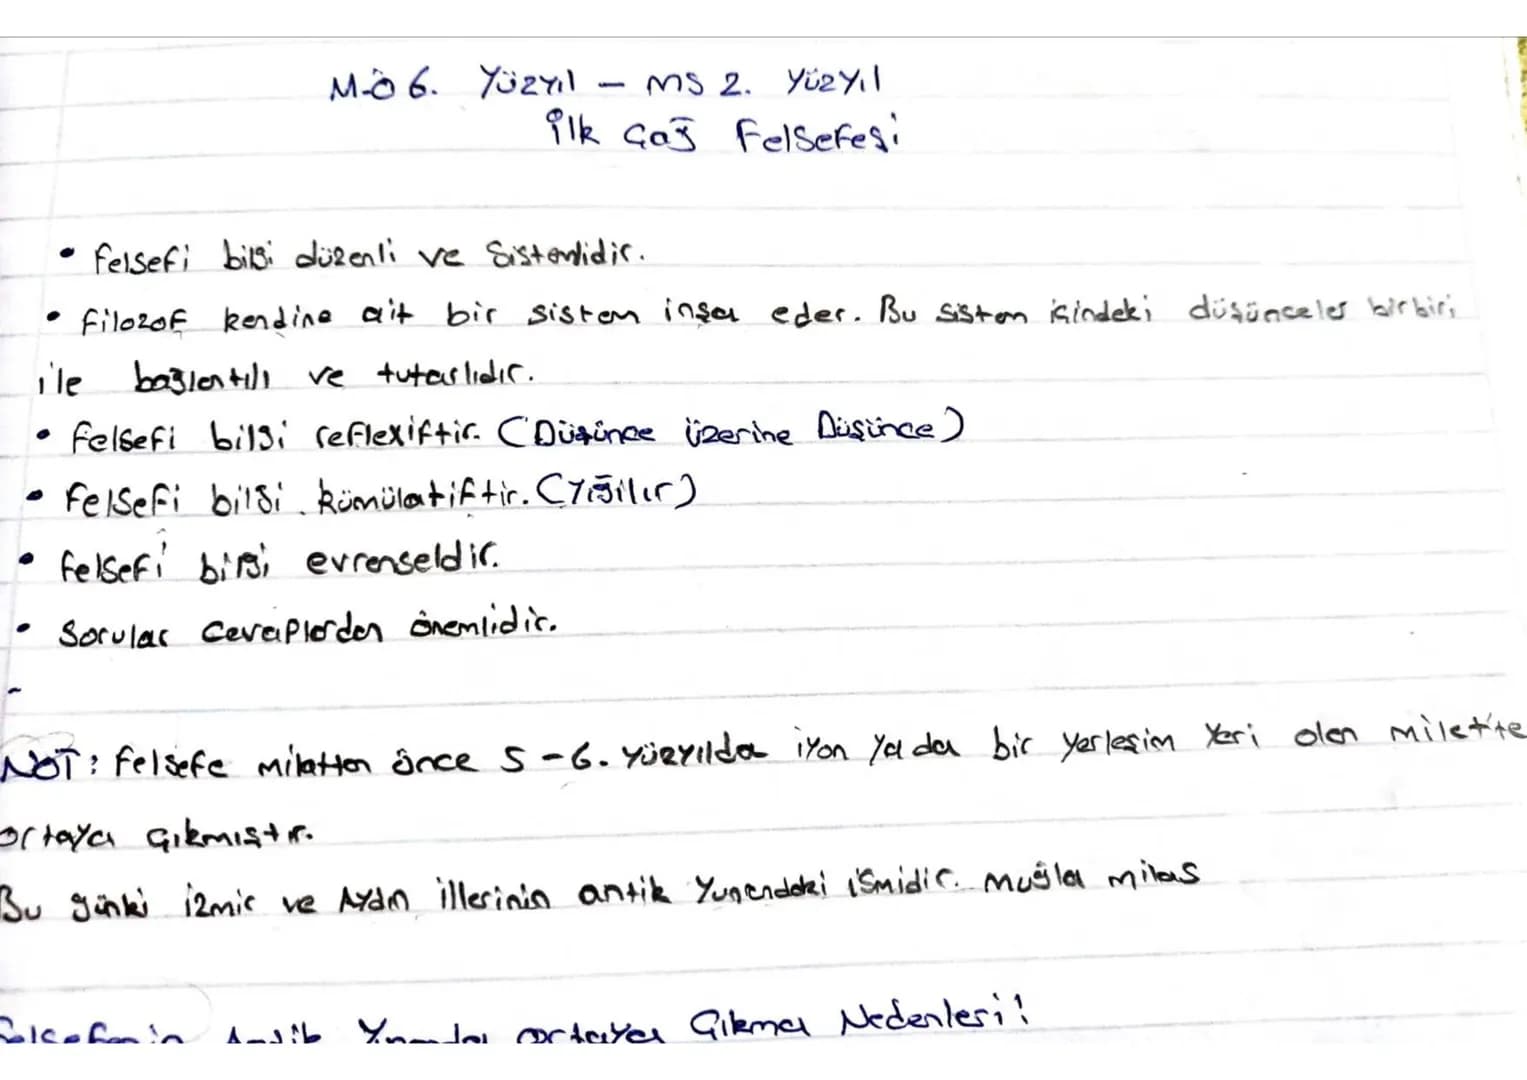 M.Ö 6. Yüzyıl – MS 2. Yüzyıl
İlk Çağ Felsefesi
• Felsefi bilgi düzenli ve Sistemlidir.
• Filozof kendine ait bir sistem inşa eder. Bu sistem içindeki düşünceler birbiri
ile bağlantılı ve tutarlıdır.
• Felsefi bilgi reflexiftir. (Düşünce üzerine Düşünce)
• Felsefi bilgi kümülatiftir. (Yığılır)
• Felsefi bilgi evrenseldir.
• Sorular Cevaplardan önemlidir.
-
NOT: Felsefe milatten önce 5-6. yüzyılda iyon ya da bir yerleşim yeri olan milet'te
ortaya çıkmıştır.
Bu günki izmir ve Aydın illerinin antik Yunandaki ismidir. muğla milas
Felsefenin Antik Yunanda ortaya Çıkma Nedenleri!